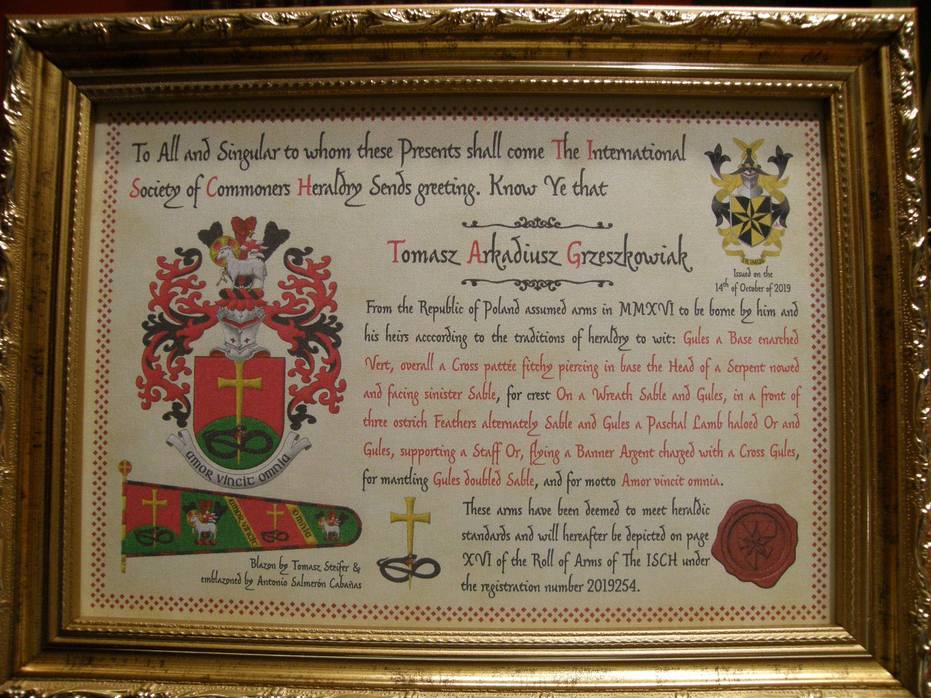 To All and Singular to whom these Presents shall come The International
Society of Commoners Heraldry Sends greeting. Know Ye that
Tomasz Arkadiusz Grzeszkowiak
Issued on the
14th of October of 2019
From the Republic of Poland assumed arms in MMXVI to be borne by him and
his heirs acccording to the traditions of heraldry to wit: Gules a Base enarched
Vert, overall a Cross pattée fitchy piercing in base the Head of a Serpent nowed
and facing sinister Sable, for crest On a Wreath Sable and Gules, in a front of
three ostrich Feathers alternately Sable and Gules a Paschal Lamb haloed Or and
Gules, supporting a Staff Or, flying a Banner Argent charged with a Cross Gules,
for mantling Gules doubled Sable, and for motto Amor vincit omnia.
AMOR VINCIT OMNIA
AMOR VINCIT OMNIA
These arms have been deemed to meet heraldic
standards and will hereafter be depicted on page
XVI of the Roll of Arms of The ISCH under
the registration number 2019254.
Blazon by Tomasz Steifer &
emblazoned by Antonio Salmerón Cabañas